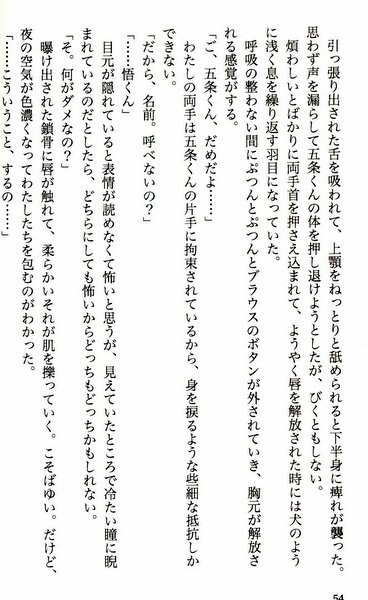 引っ張り出された舌を吸われて、上顎をねっとりと舐められると下半身に痺れが襲った。
思わず声を漏らして五条くんの体を押し退けようとしたが、びくともしない。
煩わしいとばかりに両手首を押さえ込まれて、ようやく唇を解放された時には犬のよう
に浅く息を繰り返す羽目になっていた。
呼吸の整わない間にぷつんとぷつんとブラウスのボタンが外されていき、胸元が解放さ
れる感覚がする。
「ご、五条くん、だめだよ……」
わたしの両手は五条くんの片手に拘束されているから、身を捩るような些細な抵抗しか
できない。
「だから、名前。呼べないの？」
「……悟くん」
目元が隠れていると表情が読めなくて怖いと思うが、見えていたところで冷たい瞳に睨
まれているのだとしたら、どちらにしても怖いからどっちもどっちかもしれない。
「そ。何がダメなの？」
曝け出された鎖骨に唇が触れて、柔らかいそれが肌を擽っていく。こそばゆい。だけど、
夜の空気が色濃くなってわたしたちを包むのがわかった。
「……こういうこと、するの……」
54